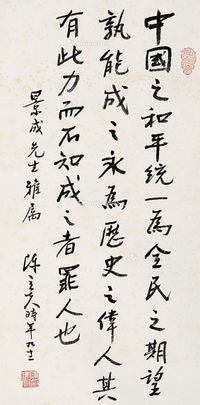 中國之和平統一為全民之期望
孰能成之永為歷史之偉人其
有此力而不知成之者罪人也
景成先生雅属
陳立夫時年九十二